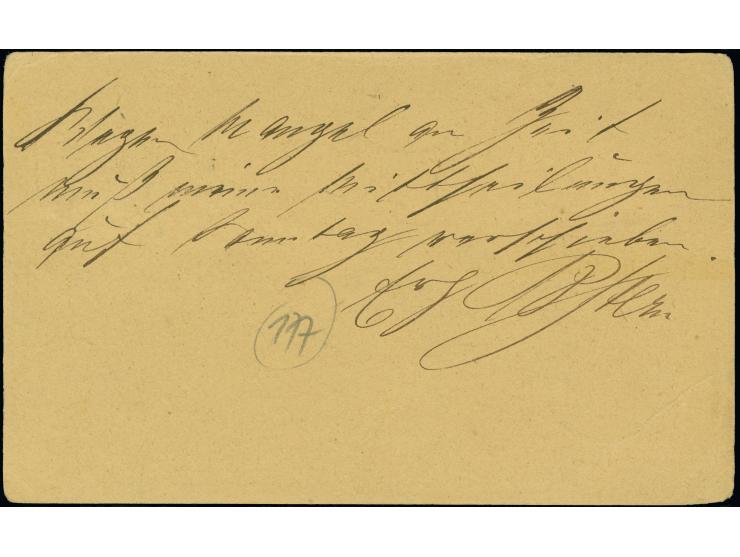 Wegen Mangel an Zeit
muß meine Mittheilungen
auf Sonntag verschieben.
177